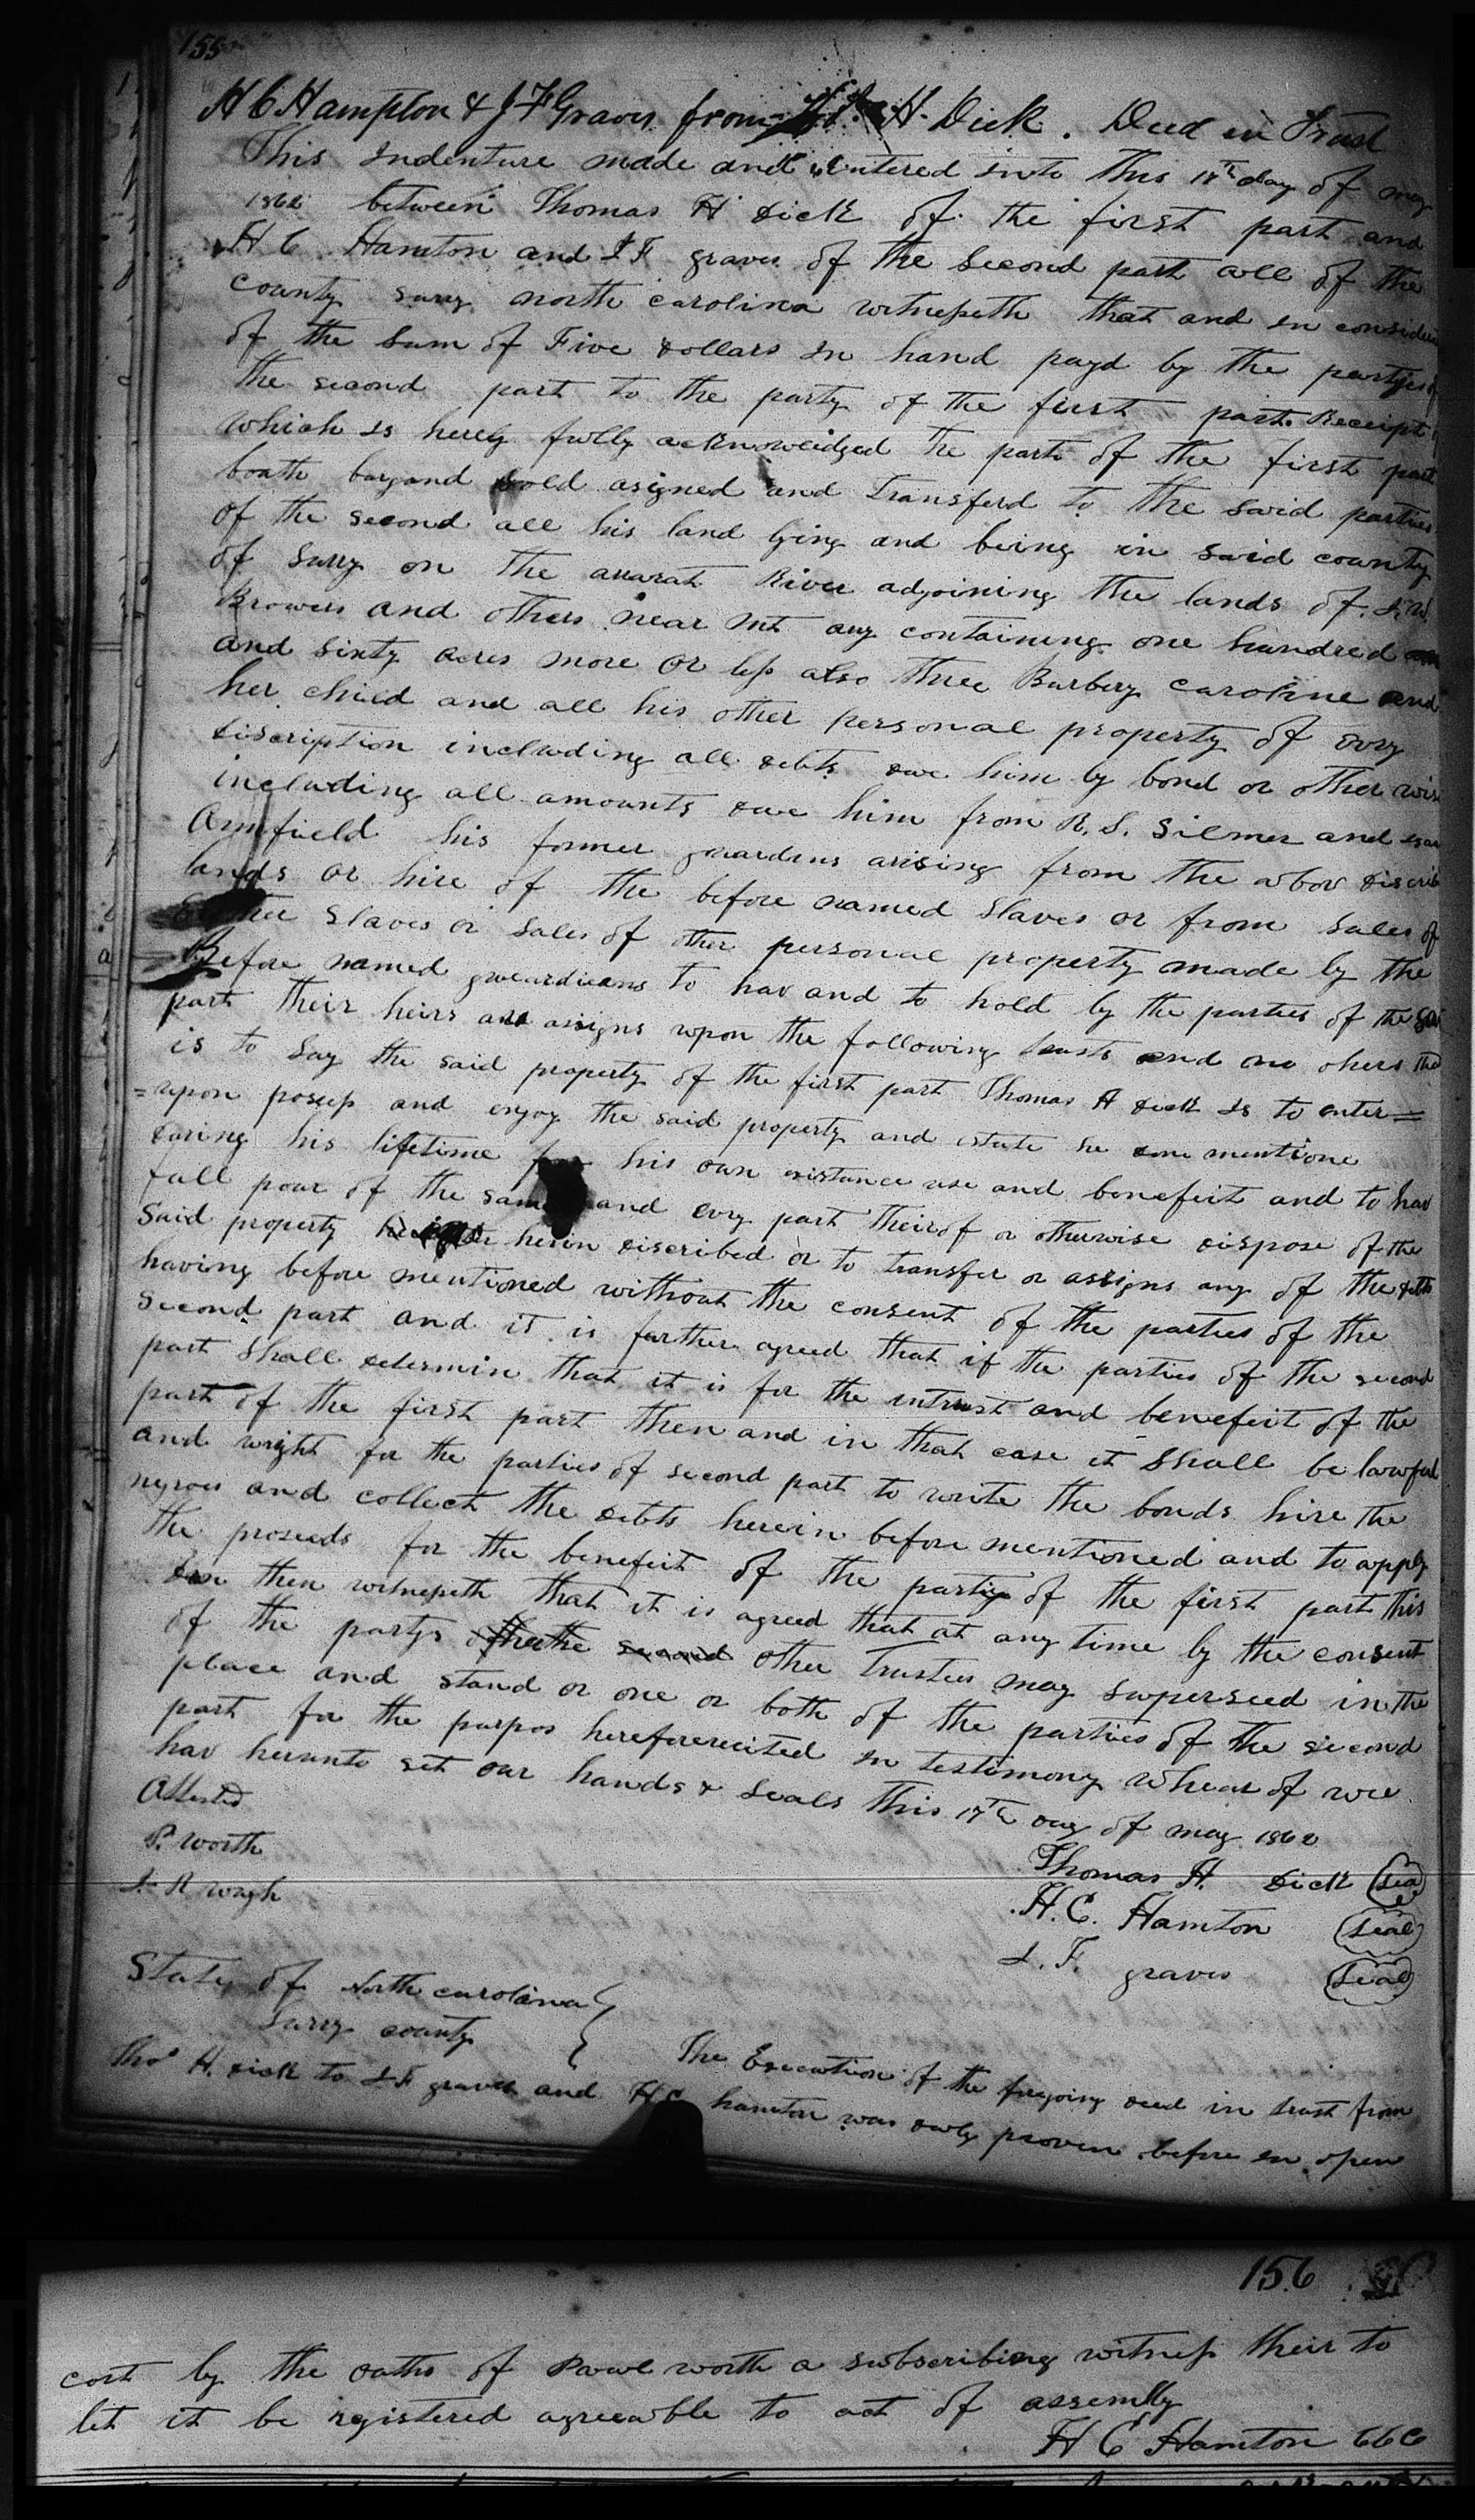 155
H C Hampton & J F Graves from H. Dick. Deed in Trust
This Indenture made and entered into this 17th day of may
1862 between Thomas H Dick of the first part and
H C Hamton and J F graves of the second part all of the
county surry north carolina witnesseth that and in consider
of the sum of Five dollars in hand payd by the partyes of
the second part to the party of the first part Receipt
which is herely fully acknoweidged the part of the first part
boath bargand sold asigned and Transferd to the said parties
of the second all his land lying and being in said county
of surry on the ararat River adjoining the lands of J. W.
Browers and others near mt ary containing one hundred
and sixty acres more or less also three Barbery caroline and
her child and all his other personal property of evry
discription including all debts due him by bond or other wise
including all amounts due him from R. S. Gilmer and
Armfield his former guardins arising from the abov discrib
lands or hire of the before named slaves or from sales of
slaves or sales of other personal property made by the
Before named gueardieans to hav and to hold by the parties of the
part their heirs and assigns upon the following trusts and no ohers that
is to say the said property of the first part Thomas H Dick is to enter=
=upon possess and enjoy the said property and estate he mentione
during his lifetime for his own existance use and benefeit and to hav
full pour of the same and evry part theirof or otherwise dispose of the
said property herin discribed or to transfer or assigns any of the debts
having before mentioned without the consent of the parties of the
second part and it is further agreed that if the parties of the second
part shall determin that it is for the intrust and benefeit of the
part of the first part then and in that case it shall be lawful
and wright for the parties of second part to write the bonds hire the
negroes and collect the debts herein before mentioned and to apply
the proseeds for the benefeit of the party of the first part this
then witnesseth that it is agreed that at any time by the consent
of the partys other Trustees may superseed in the
place and stand or one or both of the parties of the second
part for the purpos hereforerecited in testimony whear of wee
hav herunto set our hands & seals this 17th day of may 1862
Attested
P. Worth
J. R Waugh
Thomas H. Dick (Seal)
H. C. Hamton (Seal)
J. F. graves (Seal)
State of North carolina
Surry county
The Execution of the foregoing deed in trust from
Thos H. Dick to J F graves and H C hamton was duly proven before in open
156
cort by the oaths of Pawl worth a subscribing witness their to
let it be registered agreeable to act of assemlly
H C Hamton CCC